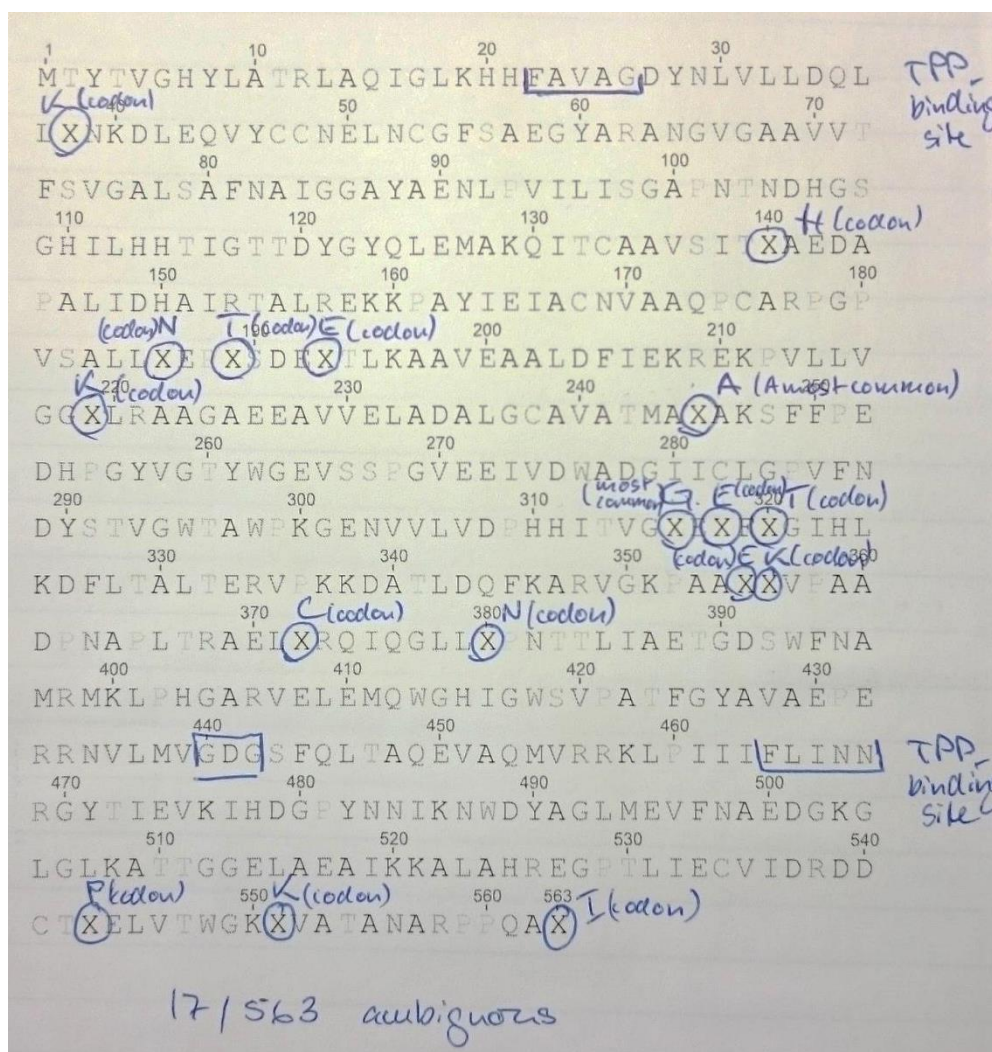 1 10 20 30
MTYTVGHYLATRLAQIGLKHHFAVAGDYNLVLLDQL TPP_
K (codon) 40 50 60 70 binding
IXNKDLEQVYCCNELNCGFSAEGYARANGVGAAVVT site
80 90 100
FSVGALSAFNAIGGAYAENLPVILISGAPNTNDHGS
110 120 130 140 H (codon)
GHILHHTIGTTDYGYQLEMAKQITCAAVSITXAEDA
150 160 170 180
PALIDHAIRTALREKKPAYIEIACNVAAQPCARPGP
(codon) N T (codon) 190 E (codon) 200 210
VSALLXEPXSDEXTLKAAVEAALDFIEKREKPVLLV
K (codon) 220 230 240 A (A most common) 250
GGXLRAAGAEEAVVELADALGCAVATMAXAKSFFPE
260 270 280
DHPGYVGTYWGEVSSPGVEEIVDWADGIICLGPVFN
290 300 310 (most common) G E (codon) 320 T (codon)
DYSTVGWTAWPKGENVVLVDPHHITVGX X XGIHL
330 340 350 (codon) E K (codon) 360
KDFLTALTERVPKKDATLDQFKARVGKPAAXXVPAA
370 C (codon) 380 N (codon) 390
DPNAPLTRAELXRQIQGLLXPNTTLIAETGDSWFNA
400 410 420 430
MRMKLPHGARVELEMQWGHIGWSVPATFGYAVAEPE
440 450 460
RRNVLMVGDGSFQLTAQEVAQMVRRKLPIIIFLINN TPP_
470 480 490 500 binding
RGYTIEVKIHDGPYNNIKNWDYAGLMEVFNAEDGKG site
510 520 530 540
LGLKATTGGELAEAIKKALAHREGPTLIECVIDRDD
P (codon) 550 K (codon) 560 563 I (codon)
CTXELVTWGKXVATANARPPQAX
17/563 ambignous